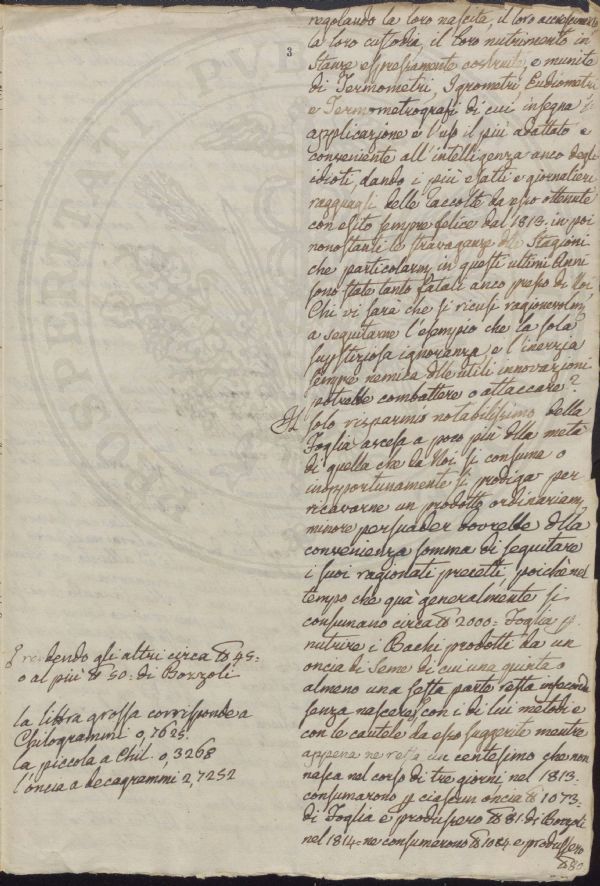 3
regolando la loro nascita, il loro accrescimento
la loro custodia, il loro nutrimento in
stanze espressamente costruite, e munite
di Termometri, Igrometri, Eudiometri
e Termometrografi di cui insegna l'
applicazione e l'uso il più adattato e
conveniente all'intelligenza anco degli
idioti, dando i più esatti e giornalieri
ragguagli delle raccolte da esso ottenute
con esito sempre felice dal 1813. in poi
nonostanti le stravaganze dlle stagioni
che particolarm, in questi ultimi Anni
sono state tanto fatali anco presso di Noi
Chi vi sarà che si ricusi ragionevolm,
a seguitarne l'esempio che la sola
supstiziosa ignoranza, e l'inerzia
sempre nemica dlle utili innovazioni
potrebbe combattere o attaccare?
Il solo risparmio notabilissimo della
Foglia ascesa a poco più dlla metà
di quella che da Noi si consuma o
inopportunamente si prodiga per
ricavarne un prodotto ordinariam,
minore persuader dovrebbe dlla
convenienza somma di seguitare
i suoi ragionati precetti, poichè nel
tempo che quà generalmente si
consumano circa ℔ 2000= Foglia p
nutrire i Bachi prodotti da un
oncia di seme di cui una quinta o
almeno una sesta parte resta infeconda
senza nascere, con i di lui metodi e
con le cautele da esso suggerite mentre
appena ne resta un centesimo che non
nasca nel corso di tre giorni nel 1813.
consumarono p ciascun oncia ℔ 1073=
di Foglia e produssero ℔ 81. di Bozzoli
nel 1814= ne consumarono ℔ 1084 e produssero
℔ 80
rendendo gli altri circa ℔ 45=
o al più ℔ 50= di Bozzoli
la libbra grossa corrisponde a
Chilogrammi 0,7625.
la piccola a Chil. 0,3268
l'oncia a decagrammi 2,7252